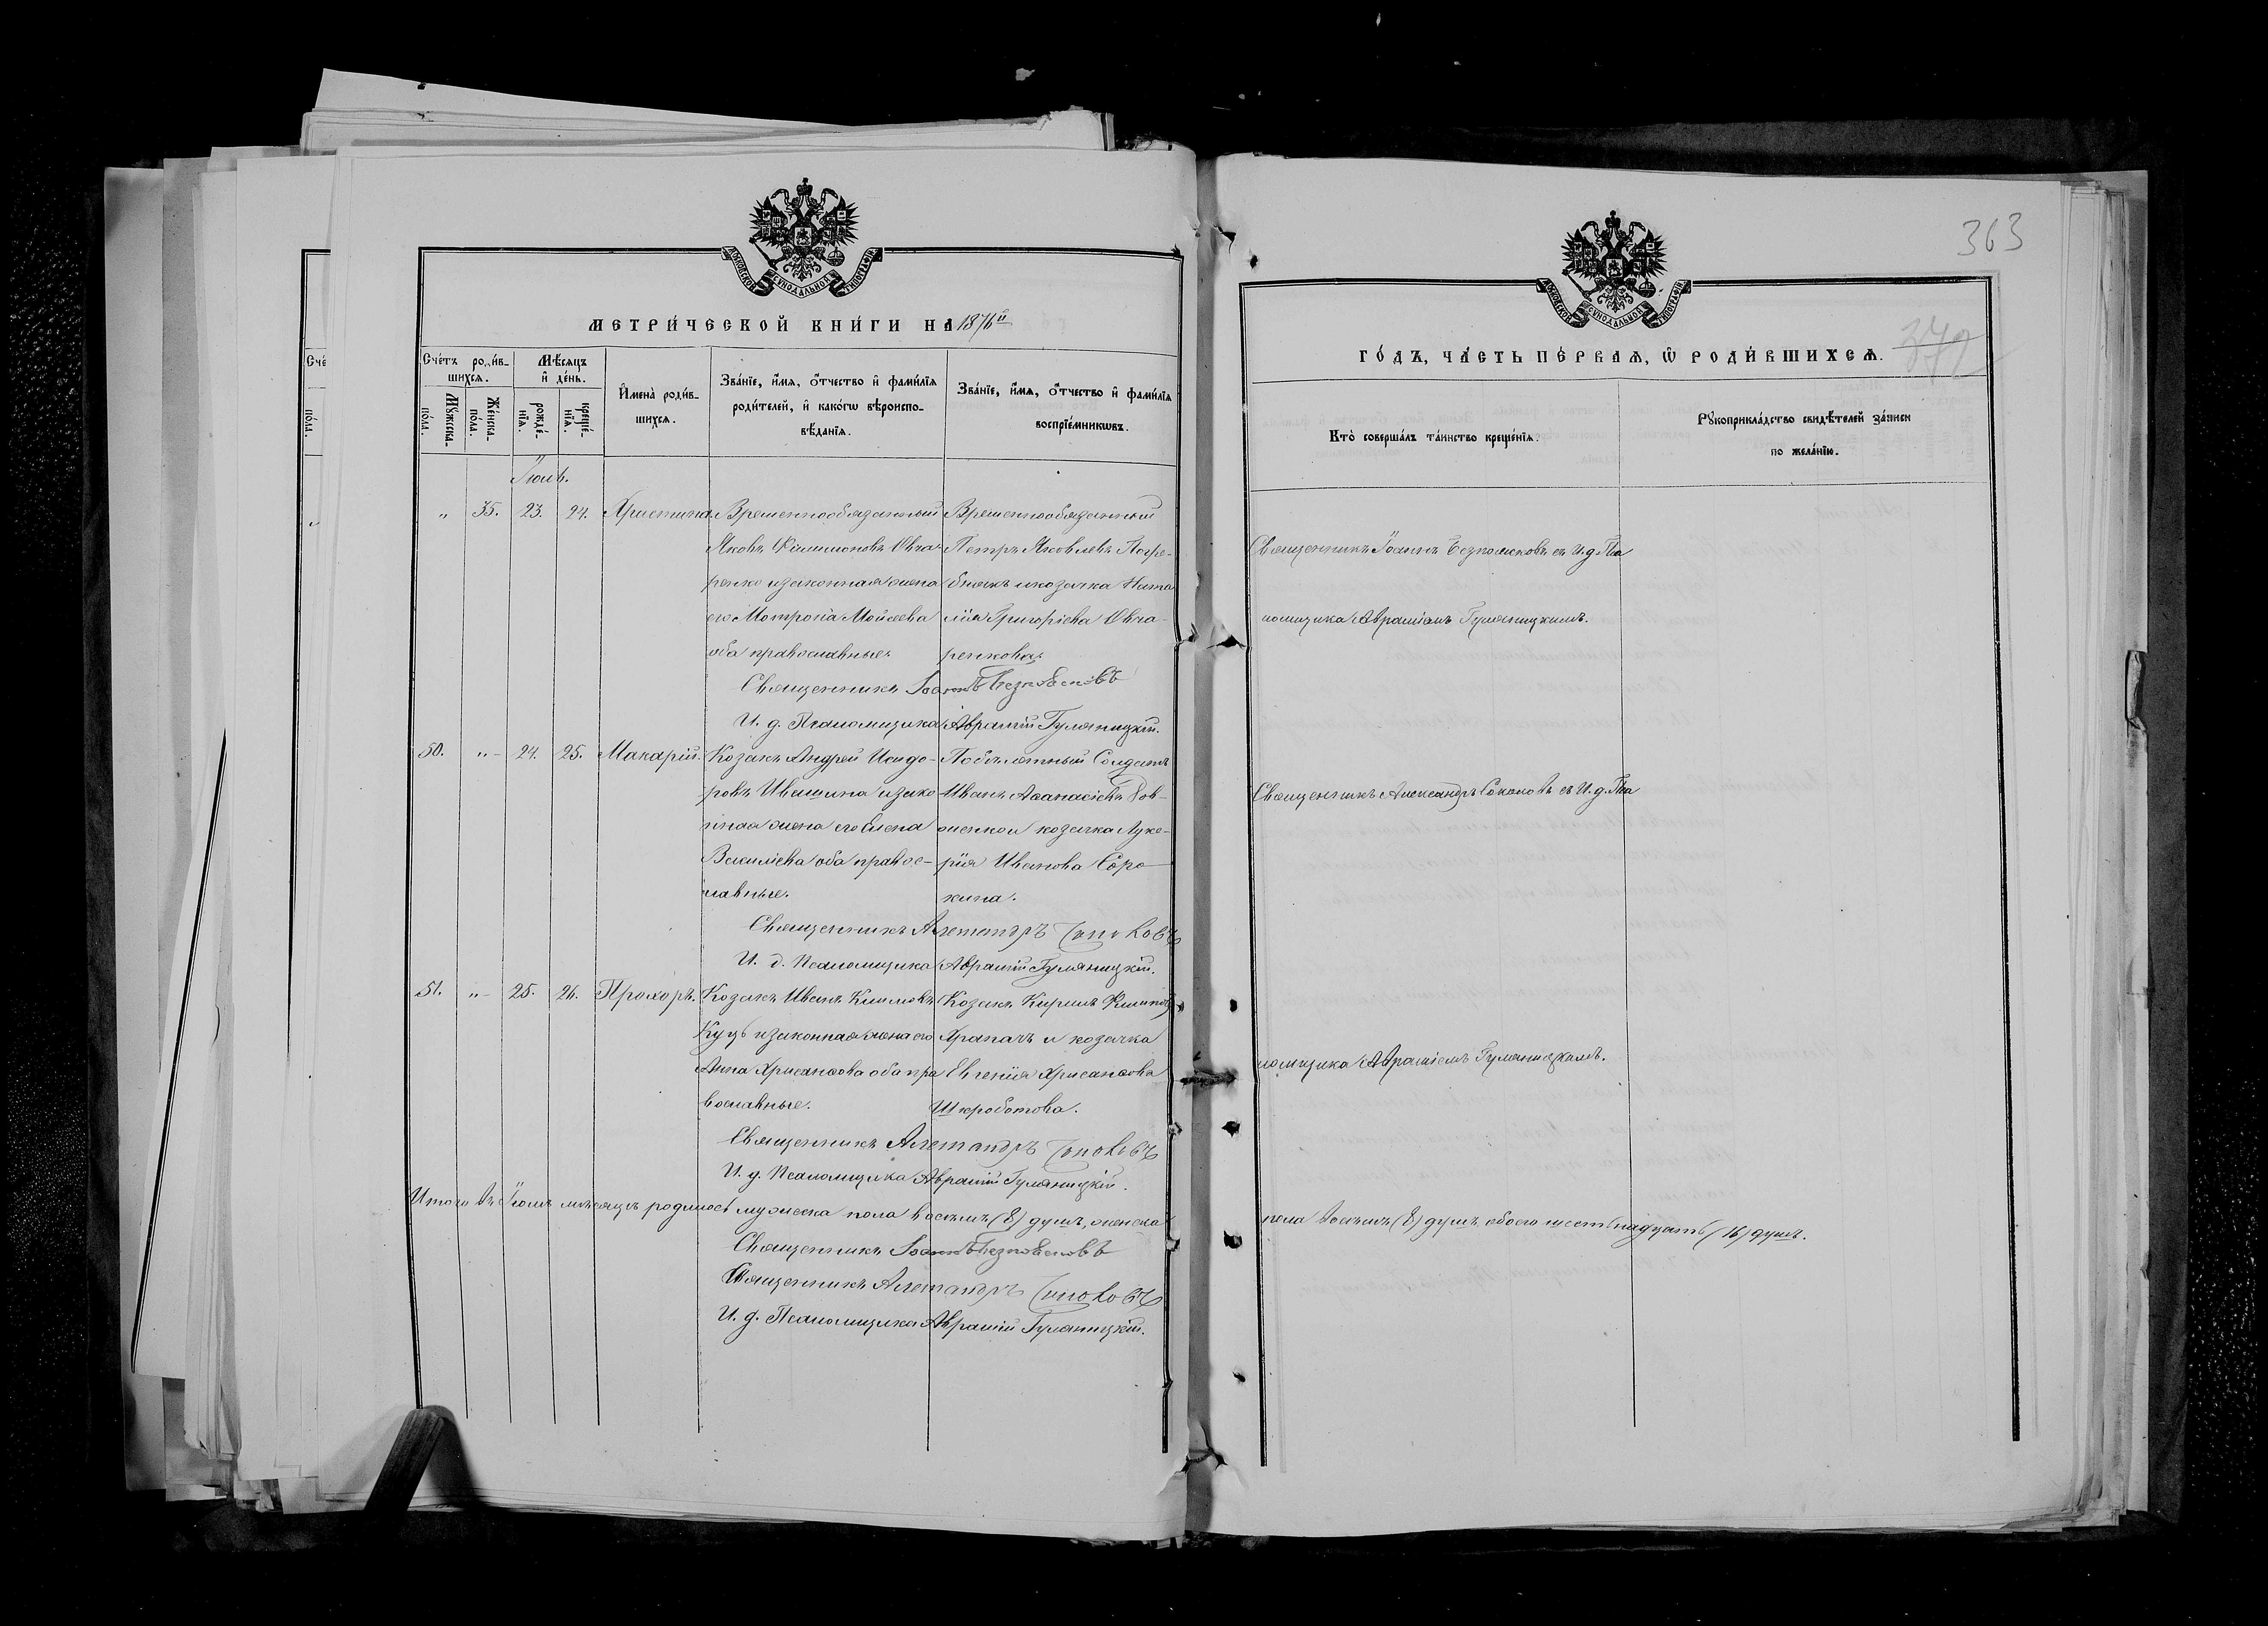 363
372
МОСКОВСКОЙ СѴНОДАЛЬНОЙ ТИПОГРАФІИ
МОСКОВСКОЙ СѴНОДАЛЬНОЙ ТИПОГРАФІИ
МЕТРИ́ЧЕСКОЙ КНИ́ГИ НА 1876й
ГО́ДЪ, ЧА́СТЬ ПЕ́РВАѦ, Ѡ҆ РОДИ́ВШИХСѦ.
Сче́тъ роди́в-
шихсѧ.
Мꙋ́жеска
по́ла.
Же́нска
по́ла.
Мѣ́сѧцъ
и҆ де́нь.
рожде́-
нїѧ.
креще́-
нїѧ.
И҆мена̀ роди́в-
шихсѧ.
Зва́нїе, и҆́мѧ, ѻ҆́тчество и҆ фамі́лїѧ
роди́телей, и҆ како́гѡ вѣроиспо-
вѣ́данїѧ.
Зва́нїе, и҆́мѧ, ѻ҆́тчество и҆ фамі́лїѧ
воспрїе́мникѡвъ.
Кто̀ соверша́лъ та́инство креще́нїѧ.
Рꙋкоприкла́дство свидѣ́телей за́писи
по жела́нїю.
Іюль.
" 35. 23. 24. Христина. Временнообязанный
Яковъ Филимоновъ Овча-
ренко и законная жена
его Мотрона Мойсеева
оба православные.
Временнообязанный
Петръ Яковлевъ
и козачка Ната
лія Григоріева Овча-
ренкова.
Священникъ Іоаннъ Безпояс­ковъ съ И. д. Пса
ломщика Авраміемъ Гуляницкимъ.
Священникъ Іоаннъ
И. д. Псаломщика Аврамій Гуляницкій.
50. " 24. 25. Макарій. Козакъ Андрей Исидо-
ровъ Ивашина и зако
нная жена его Елена
Васильева оба правос-
лавные.
Побилетный Солдатъ
Иванъ Аѳанасіевъ Дов-
женко и козачка Луке-
рія Иванова Соро
кина.
Священникъ Александръ Соколовъ съ И. д. Пса
ломщика Авраміемъ Гуляницкимъ.
Священникъ Александръ Соколовъ
И. д. Псаломщика Аврамій Гуляницкій.
51. " 25. 26. Прохоръ. Козакъ Иванъ Климовъ
Куцъ и законная жена его
Анна Хрисанѳова оба пра
вославные.
Козакъ Кирилъ Филиповъ
Храпачъ и козачка
Евгенія Хрисанѳова
Шкроботова.
Священникъ Александръ Соколовъ
И. д. Псаломщика Аврамій Гуляницкій.
Итого въ Іюлѣ мѣсяцѣ родилось мужеска пола восемь (8) душъ, женска
пола восемь (8) душъ, обоего шестьнадцать (16) душъ.
Священникъ Іоаннъ
Священникъ Александръ Соколовъ
И. д. Псаломщика Аврамій Гуляницкій.